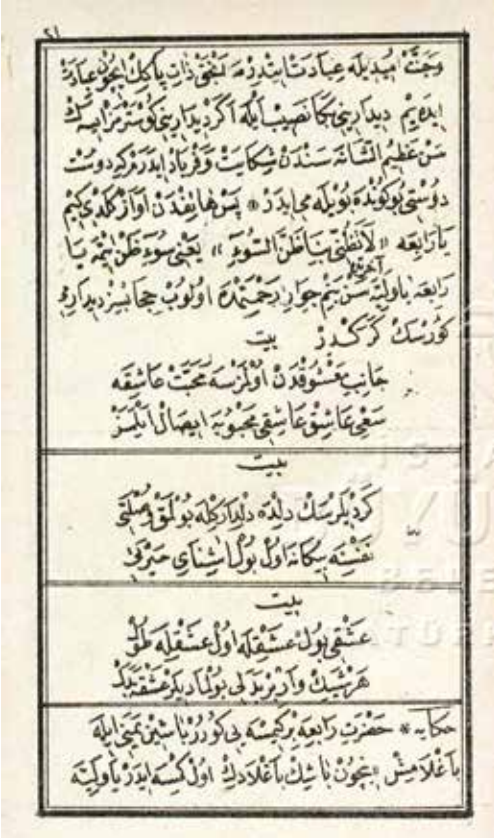 ٢١
وجنّت اميديله عبادت ايتدرمه يعنى ذات پاكك ايچون عبادت
ايده يم ديدارينى بكا نصيب ايله اكر ديدارينى كوسترمز ايسك
سن عظيم الشانه سندن شكايت وفرياد ايدرم كه دوست
دوستى بو كونده بويله مى ايدر * پس هاتفدن آواز كلدى كيم
يا رابعه « لا تظنّى بنا ظنّ السّوء » يعنى سوء ظن ايتمه يا
رابعه يا وليّه آخرتده سن بنم جوار رحمتمده اولوب حجابسز ديدارم
كورسك كركدر بيت
جانب معشوقدن اولمزسه محبّت عاشقه
سعى عاشق عاشقى محبوبه ايصال ايلمز
بيت
كر ديلرسك دلده دلدار كله بولمق وصلتى
نفسنه بيكانه اول بول آشناى
بيت
عشقى بول عشقله اول عشقله
هر شيئك وارير بدلى بولماديلر عشقه بدل
حكايه * حضرت رابعه بر كيمسه يى كورر باشين ايله
باغلامش نيچون باشك باغلادك اول كسه ايدر يا وليّه